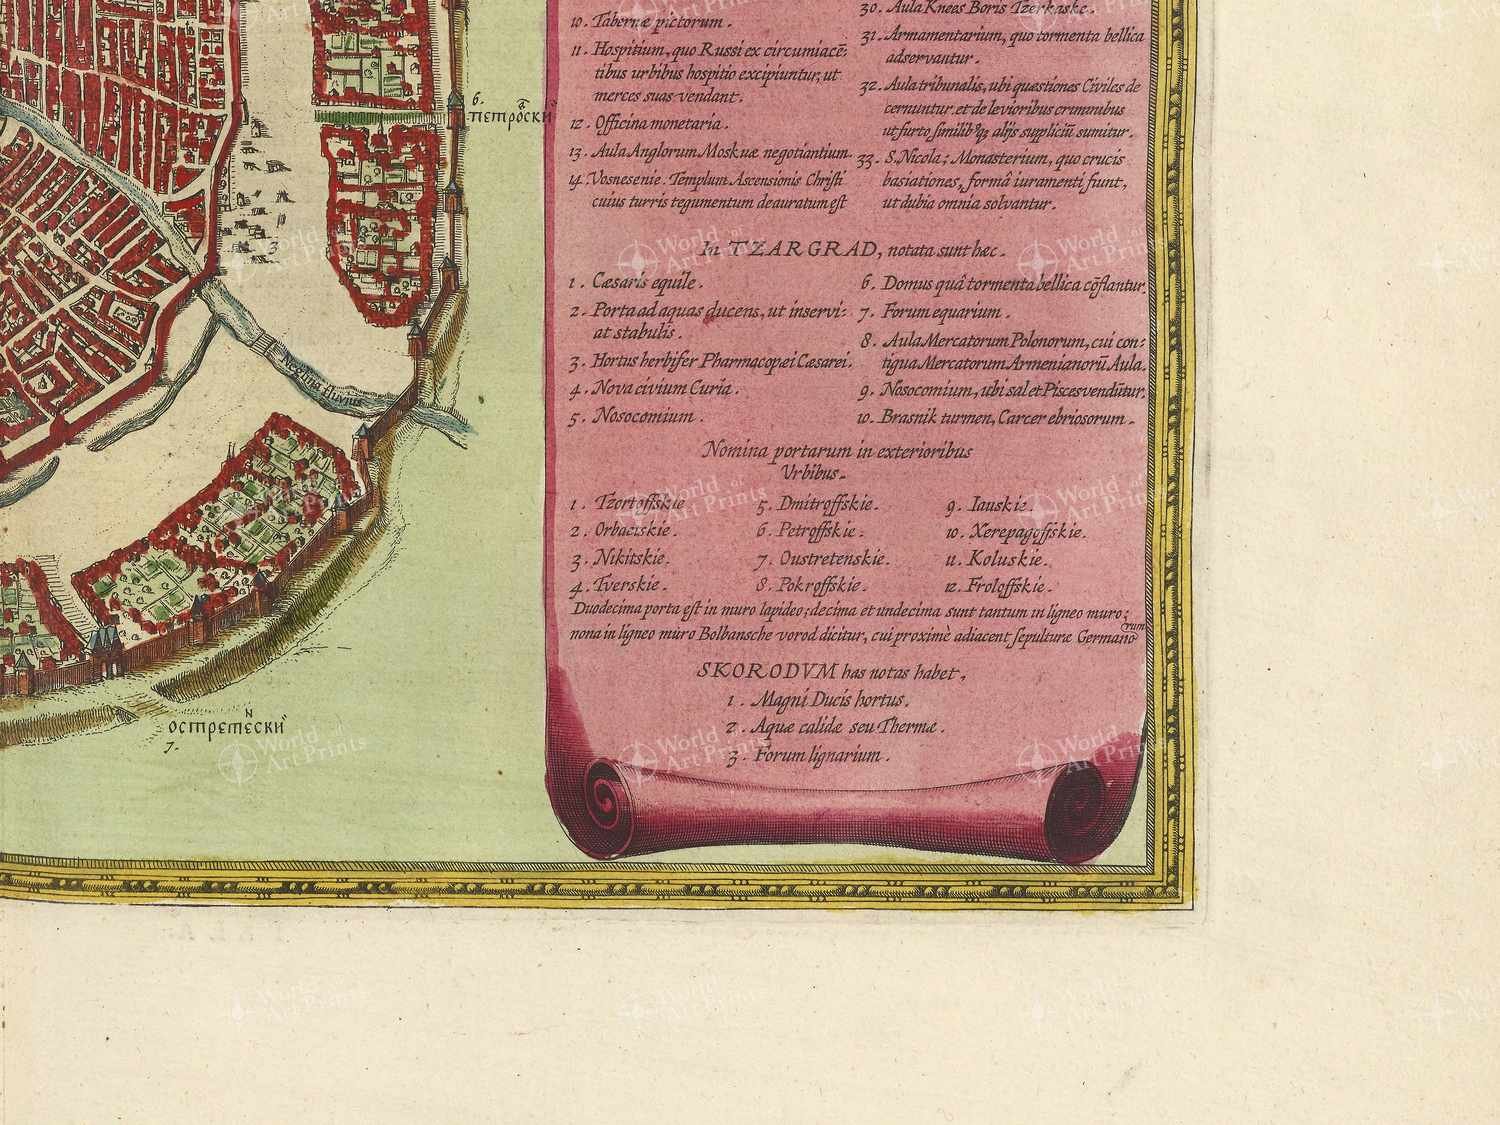 10. Tabernæ pictorum.
11. Hospitium, quo Russi ex circumiacē:
tibus urbibus hospitio excipiuntur, ut
merces suas vendant.
12. Officina monetaria.
13. Aula Anglorum Moskuæ negotiantium.
14. Vosnesenie. Templum Ascensionis Christi
cuius turris tegumentum deauratum est
30. Aula Knees Boris Tzerkaske.
31. Armamentarium, quo tormenta bellica
adservantur.
32. Aula tribunalis, ubi quæstiones Civiles de
cernuntur et de levioribus criminibus
ut furto, similibꝰqȝ alijs suppliciū sumitur.
33. S. Nicola; Monasterium, quo crucis
basiationes, formâ iuramenti fiunt,
ut dubia omnia solvantur.
In TZARGRAD, notata sunt hæc.
1. Cæsaris equile.
2. Porta ad aquas ducens, ut inservi:
at stabulis.
3. Hortus herbifer Pharmacopœi Cæsarei.
4. Nova civium Curia.
5. Nosocomium.
6. Domus quâ tormenta bellica cōflantur.
7. Forum equarium.
8. Aula Mercatorum Polonorum, cui con:
tigua Mercatorum Armenianorū Aula.
9. Nosocomium, ubi sal et Pisces vendūtur.
10. Brasnik turmen, Carcer ebriosorum.
Nomina portarum in exterioribus
Urbibus.
1. Tzortoffskie
2. Orbatskie.
3. Nikitskie.
4. Tverskie.
5. Dmitroffskie.
6. Petroffskie.
7. Oustretenskie.
8. Pokroffskie.
9. Iauskie.
10. Xerepagoffskie.
11. Koluskie.
12. Froloffskie.
Duodecima porta est in muro lapideo; decima et undecima sunt tantum in ligneo muro;
nona in ligneo muro Bolbansche vorod dicitur, cui proximè adiacent sepulturæ Germano
rum
SKORODVM has notas habet.
1. Magni Ducis hortus.
2. Aquæ calidæ seu Thermæ.
3. Forum lignarium.
6.
петроски
3
Neglina fluvius
остретески
7.
World of
Art Prints